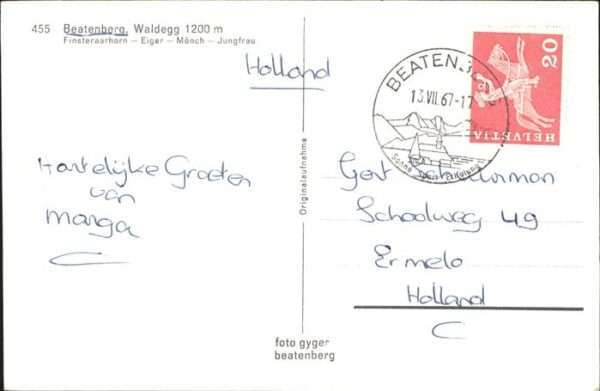 455 Beatenberg, Waldegg 1200 m
Finsteraarhorn – Eiger – Mönch – Jungfrau
Holland
Hartelijke Groeten
van
Marga
Originalaufnahme
foto gyger
beatenberg
BEATENBERG
13.VII.67-17
Sonne
HELVETIA
20
Gert
Schoolweg 49
Ermelo
Holland